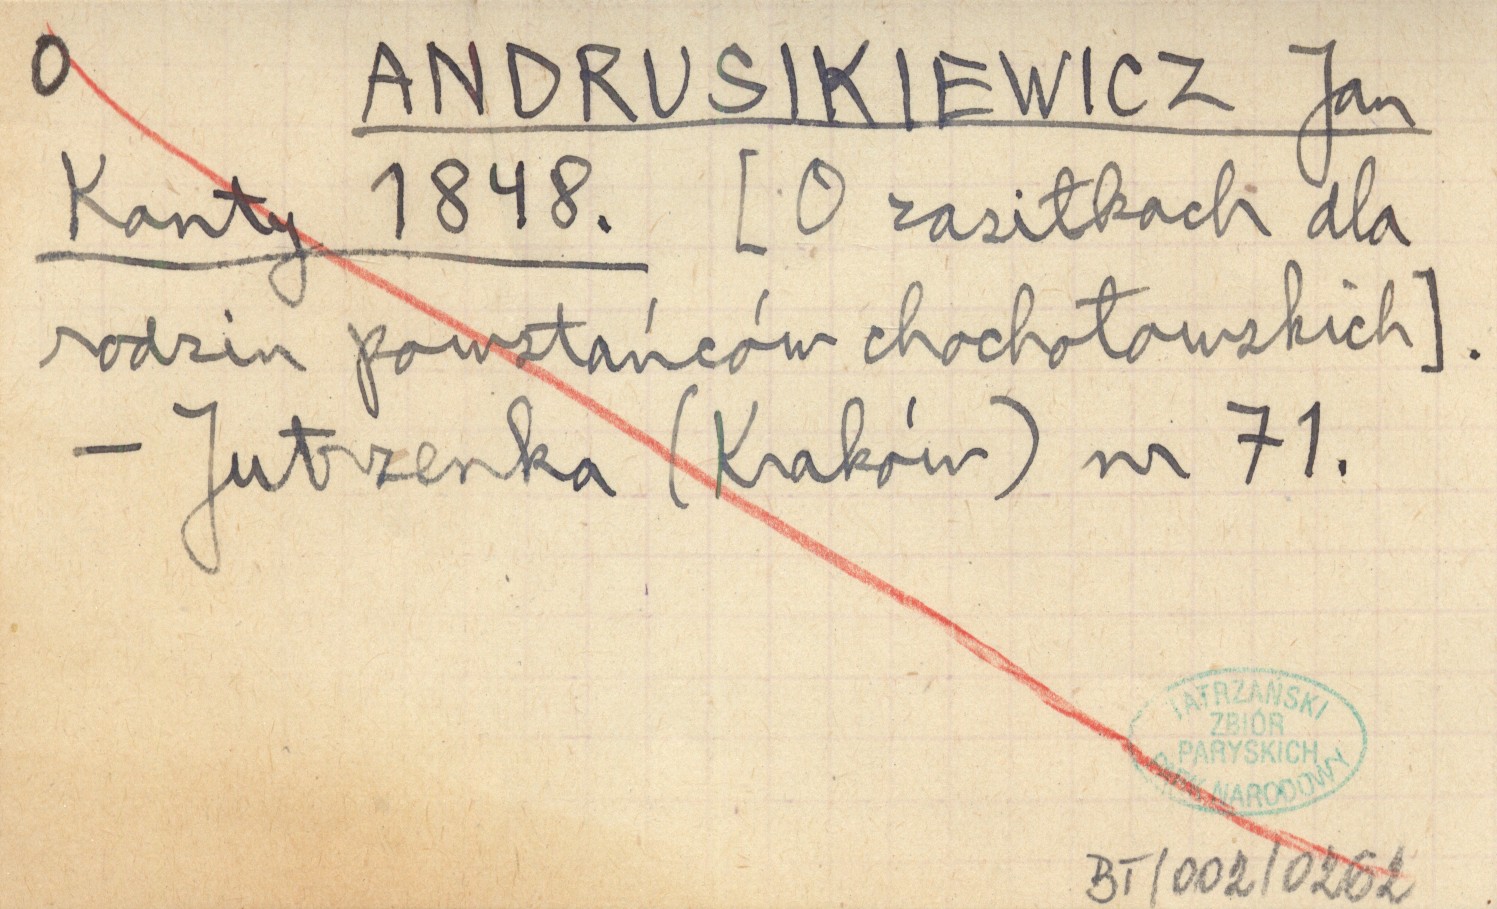 O ANDRUSIKIEWICZ Jan
Kanty 1848. [O zasiłkach dla
rodzin powstańców chochołowskich].
– Jutrzenka (Kraków) nr 71.
TATRZAŃSKI
ZBIÓR
PARYSKICH
PARK NARODOWY
BT/002/0262